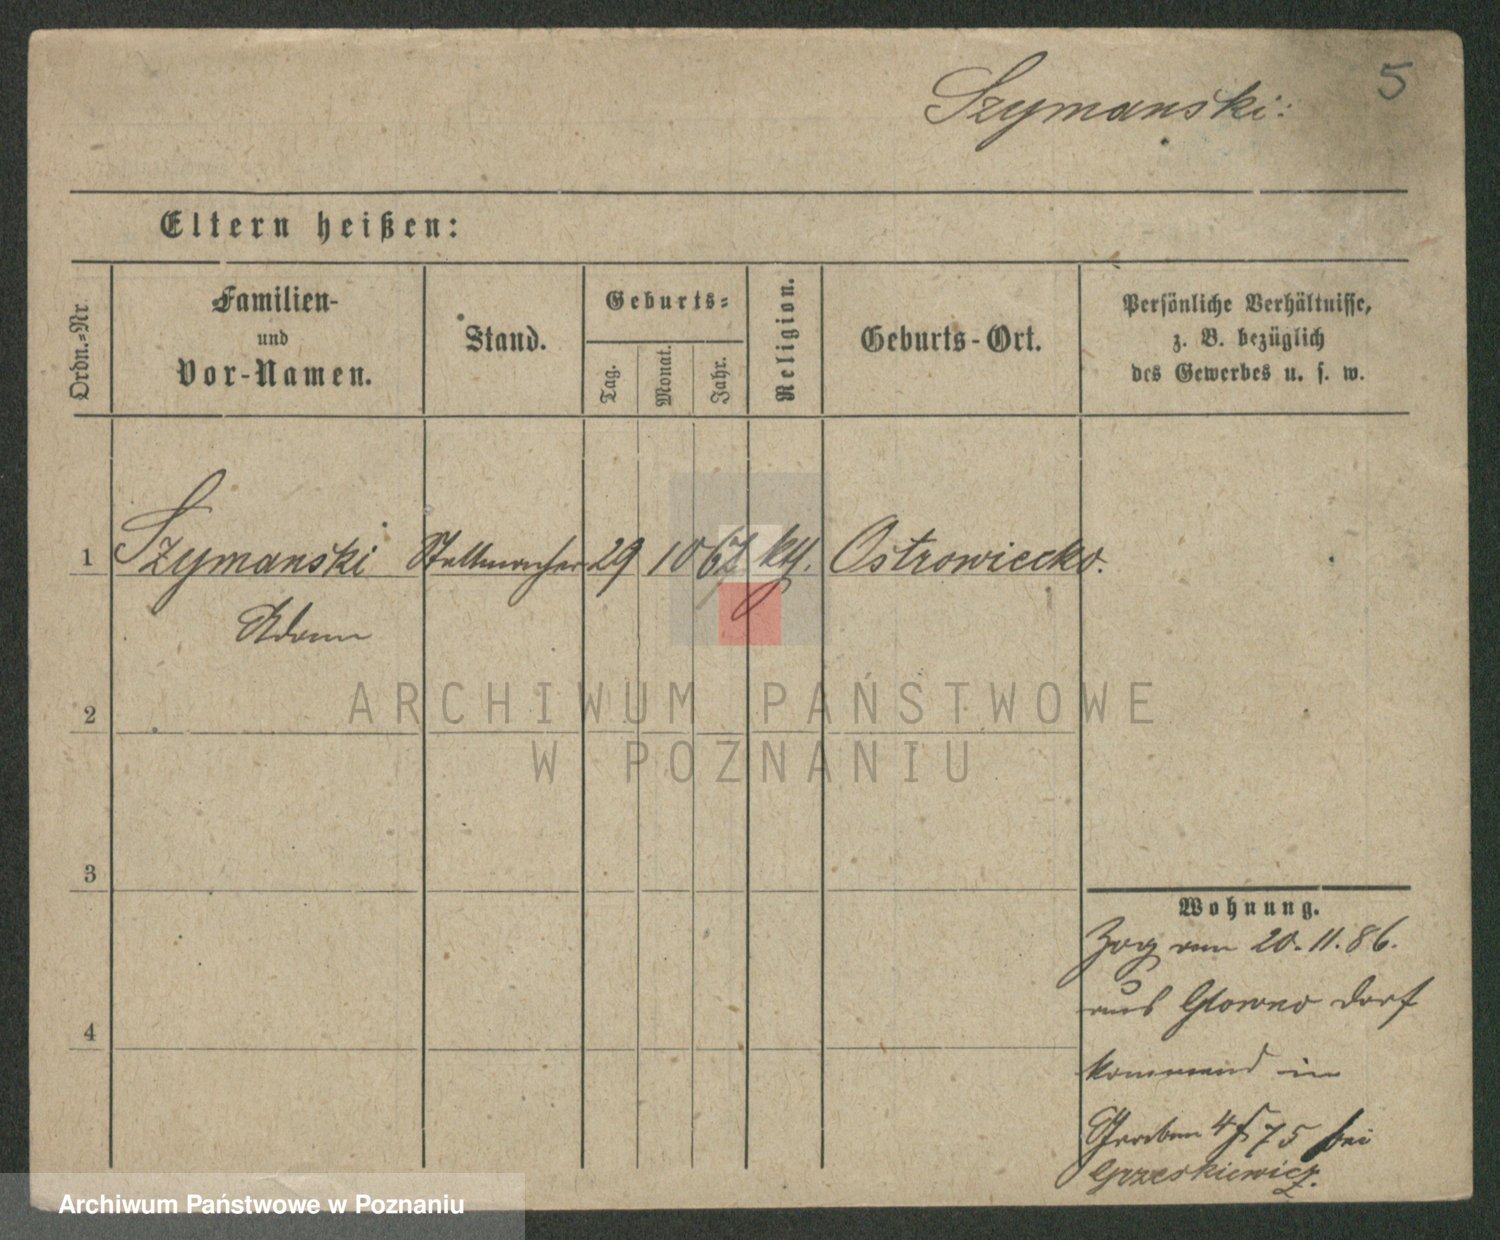 5
Szymanski:
Eltern heißen:
Ordn.=Nr.
Familien-
und
Vor-Namen.
Stand.
Geburts=
Tag.
Monat.
Jahr.
Religion.
Geburts-Ort.
Persönliche Verhältnisse,
z. B. bezüglich
des Gewerbes u. s. w.
1 Szymanski Stellmacher 29 10 67 kth. Ostrowieczko.
Adam
2
3
4
ARCHIWUM PAŃSTWOWE
W POZNANIU
Wohnung.
Zog am 20.11.86.
aus Glowno Dorf
kommend in
4/5 75 bei
Grzeskiewicz.
Archiwum Państwowe w Poznaniu